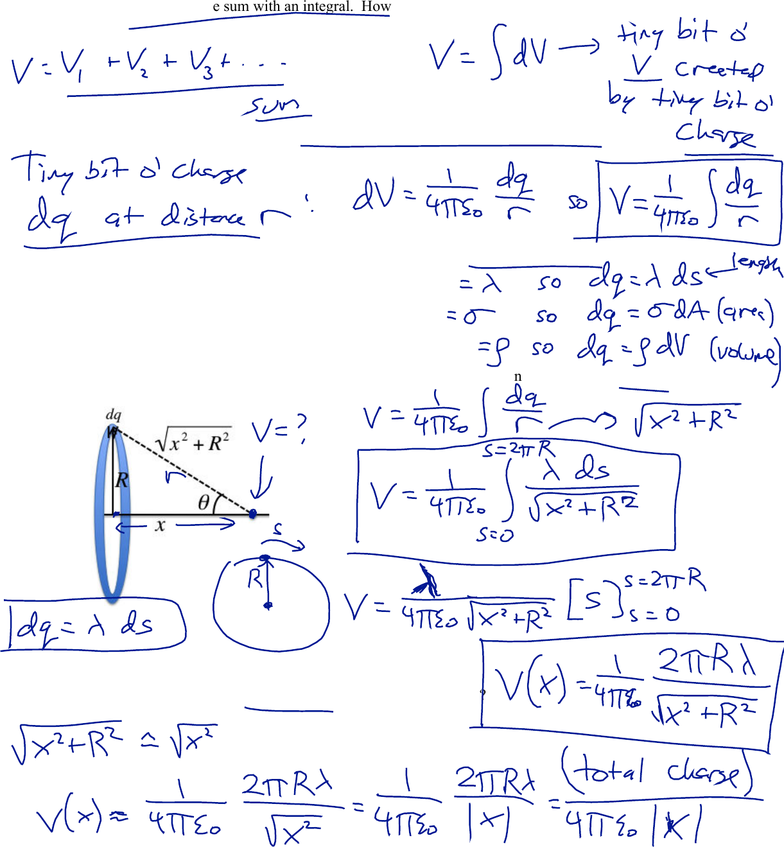 e sum with an integral. How
V = V₁ + V₂ + V₃ + . . .
sum
V = ∫ dV → tiny bit o'
V created
by tiny bit o'
charge
Tiny bit o' charge
dq at distance r :
dV = 1/4πε₀ dq/r so V = 1/4πε₀ ∫ dq/r
= λ so dq = λ ds ← length
= σ so dq = σ dA (area)
= ρ so dq = ρ dV (volume)
n
V = 1/4πε₀ ∫ dq/r → √(x² + R²)
dq
√(x² + R²)
V = ?
r
R
θ
x
s
R
dq = λ ds
V = 1/4πε₀ ∫ s=0 s=2πR λ ds/√(x² + R²)
V = λ/4πε₀ √(x² + R²) [s] s=0 s=2πR
V(x) = 1/4πε₀ 2πRλ/√(x² + R²)
√(x² + R²) ≃ √x²
V(x) ≈ 1/4πε₀ 2πRλ/√x² = 1/4πε₀ 2πRλ/|x| = (total charge)/4πε₀ |x|